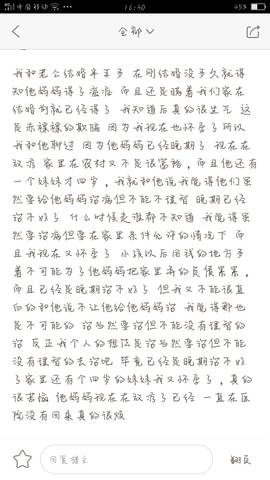 中国移动
16:30
45%
全部
我和老公结婚半年多 在刚结婚没多久就得
知他妈妈得了癌症 而且还是瞒着我们家在
结婚前就已经得了 我知道后真的很生气 这
是赤裸裸的欺骗 因为我现在也怀孕了所以
我和他聊过 因为他妈妈已经晚期了 现在在
放疗 家里在农村又不是很富裕，而且他还有
一个妹妹才四岁，我就和他说我觉得他们虽
然要给他妈妈治病但不能不理智 晚期已经
治不好了 什么时候走谁都不知道 我觉得虽
然要治病但要在家里条件允许的情况下 而
且我现在又怀孕了 小孩以后用钱的地方多
着不可能为了他妈妈把家里弄的负债累累，
而且已经是晚期治不好了 但我又不能很直
白的和他说不让他给他妈妈治 我觉得那也
是不可能的 治当然要治但不能没有理智的
治 反正我个人的想法是治当然要治但不能
没有理智的去治吧 毕竟已经是晚期治不好
了家里还有个四岁的妹妹我又怀孕了，真的
很苦恼 他妈妈现在在放疗了已经 一直在医
院没有回来真的很烦
回复楼主
翻页